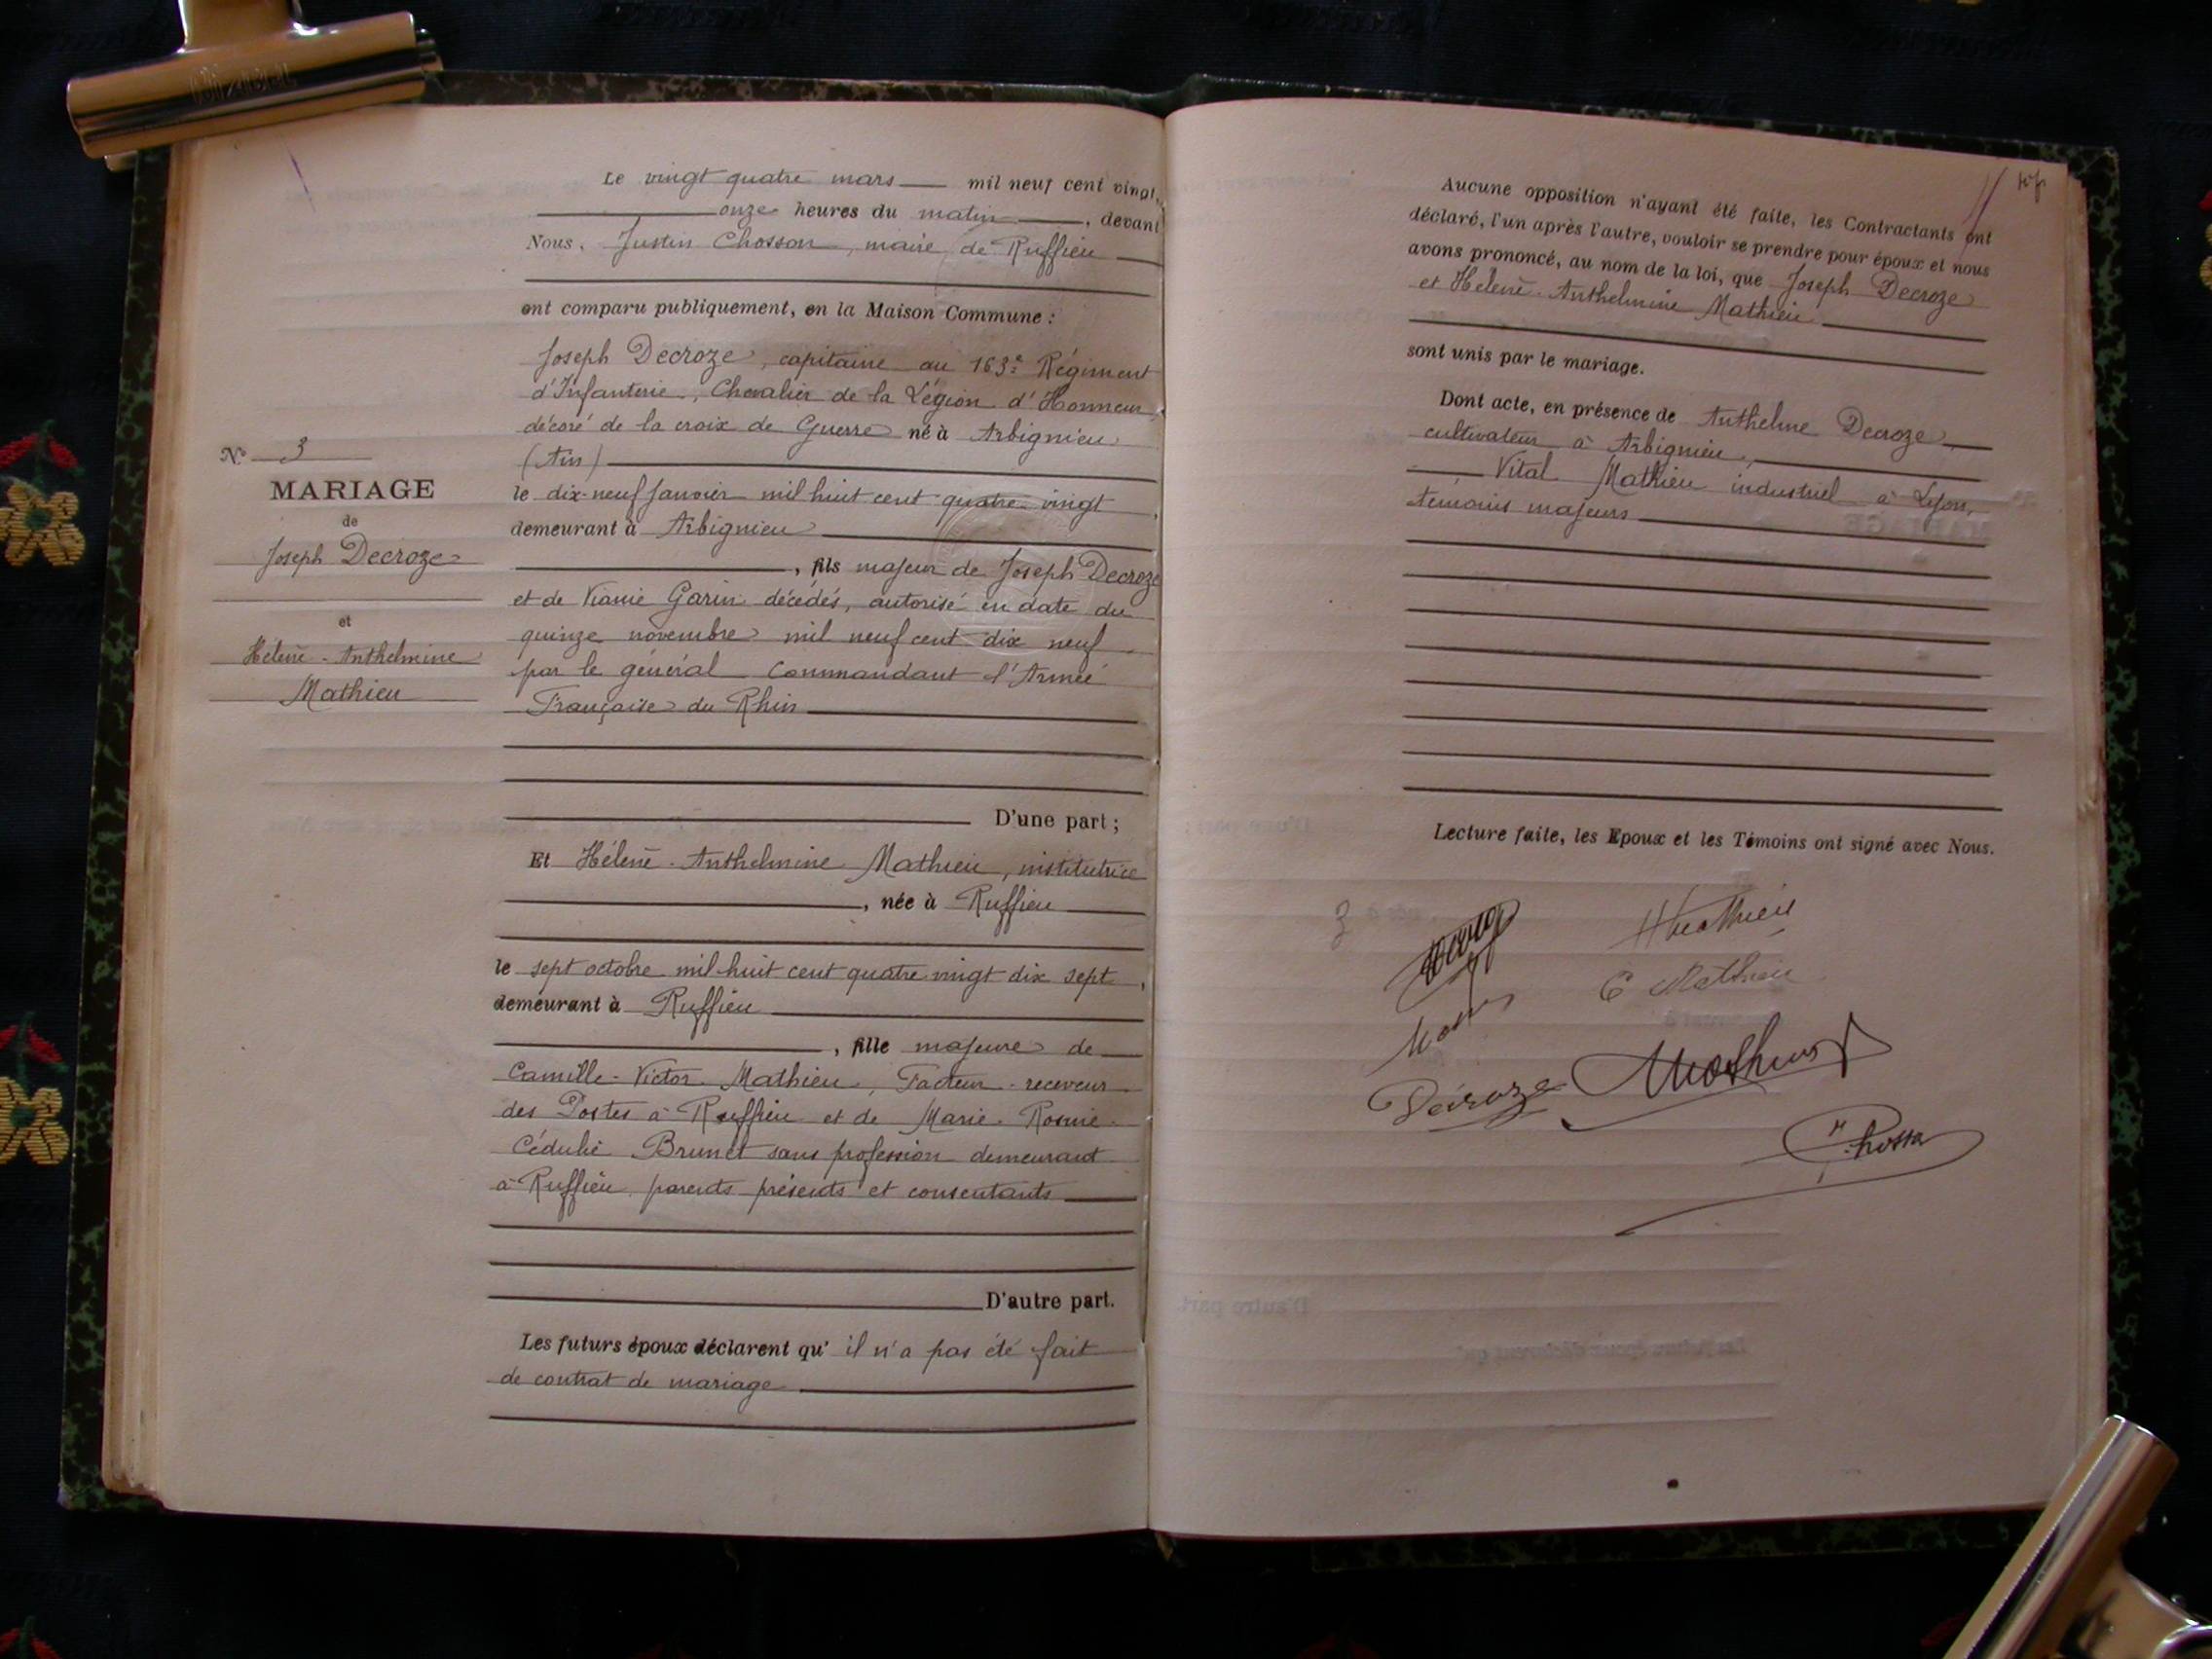 Le vingt quatre mars mil neuf cent vingt,
onze heures du matin, devant
Nous, Justin Chosson, maire de Ruffieu
ont comparu publiquement, en la Maison Commune :
Joseph Decroze, capitaine au 163e Régiment
d'Infanterie, Chevalier de la Légion d'Honneur,
décoré de la croix de Guerre né à Arbignieu
(Ain)
le dix-neuf Janvier mil huit cent quatre-vingt,
demeurant à Arbignieu
, fils majeur de Joseph Decroze
et de Garin décédés, autorisé en date du
quinze novembre mil neuf cent dix neuf
par le général Commandant l'Armée
Française du Rhin
D'une part ;
Et Hélène-Anthelmine Mathieu, institutrice
, née à Ruffieu
le sept octobre mil huit cent quatre vingt dix sept,
demeurant à Ruffieu
, fille majeure de
Camille-Victor Mathieu, Facteur-receveur
des Postes à Ruffieu et de Marie-Rosine-
Cédulie Brunet sans profession demeurant
à Ruffieu parents présents et consentants
D'autre part.
Les futurs époux déclarent qu'il n'a pas été fait
de contrat de mariage
No 3
MARIAGE
de
Joseph Decroze
et
Hélène-Anthelmine
Mathieu
Aucune opposition n'ayant été faite, les Contractants ont
déclaré, l'un après l'autre, vouloir se prendre pour époux et nous
avons prononcé, au nom de la loi, que Joseph Decroze
et Hélène-Anthelmine Mathieu
sont unis par le mariage.
Dont acte, en présence de Anthelme Decroze,
cultivateur à Arbignieu,
Vital Mathieu industriel à Lyon,
témoins majeurs
Lecture faite, les Epoux et les Témoins ont signé avec Nous.
HMathieu
C Mathieu
Decroze